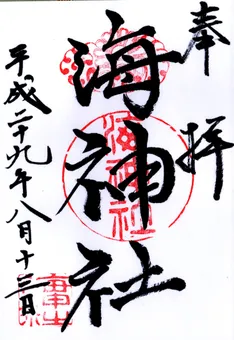 奉拝
海神社
平成二十九年八月十三日
海神社